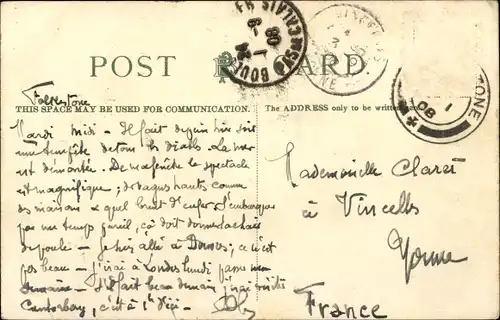 POST CARD.
THIS SPACE MAY BE USED FOR COMMUNICATION.
The ADDRESS only to be written
Folkestone
Mardi midi - Il fait depuis hier soir
une tempête de tous les diables. La mer
est démontée. De ma fenêtre le spectacle
est magnifique; des vagues hauts comme
des maisons & quel bruit d'enfer. S'embarquer
par un temps pareil, ça doit donner la chair
de poule - Je suis allé à Douvres; ce n'est
pas beau - J'irai à Londres lundi
semaine - S'il fait beau demain j'irai visiter
Cantorbery, c'est à 1h d'ici -
Mademoiselle
à Vincelles
Yonne
France
BOUL
PAS DE CALAIS
1
08
ONE
1
08